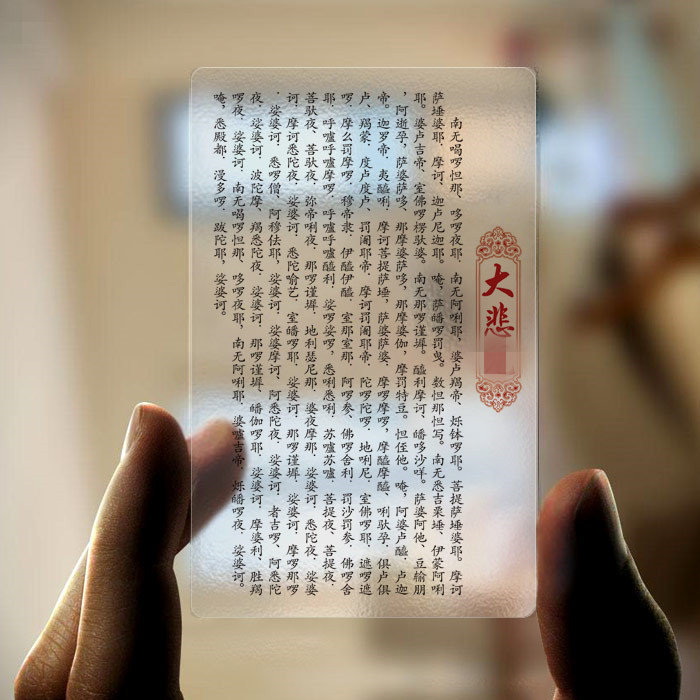 大悲
南无喝啰怛那、哆啰夜耶、南无阿唎耶、婆卢羯帝、烁钵啰耶。菩提萨埵婆耶。摩诃
萨埵婆耶、摩诃、迦卢尼迦耶。唵,萨皤啰罚曳。数怛那怛写。南无悉吉栗埵、伊蒙阿唎
耶。婆卢吉帝、室佛啰楞驮婆。南无那啰谨墀。醯利摩诃、皤哆沙咩。萨婆阿他、豆输朋
,阿逝孕,萨婆萨哆、那摩婆萨哆,那摩婆伽,摩罚特豆。怛侄他。唵,阿婆卢醯、卢迦
帝。迦罗帝、夷醯唎。摩诃菩提萨埵,萨婆萨婆、摩啰摩啰,摩醯摩醯、唎驮孕。俱卢俱
卢、羯蒙、度卢度卢、罚阇耶帝、摩诃罚阇耶帝、陀啰陀啰、地唎尼。室佛啰耶、遮啰遮
啰、摩么罚摩啰、穆帝隶、伊醯伊醯、室那室那、阿啰参、佛啰舍利、罚沙罚参、佛啰舍
耶、呼嚧呼嚧摩啰、呼嚧呼嚧醯利、娑啰娑啰,悉唎悉唎、苏嚧苏嚧、菩提夜、菩提夜、
菩驮夜、菩驮夜、弥帝唎夜、那啰谨墀、地利瑟尼那、婆夜摩那、娑婆诃、悉陀夜、娑婆
诃、摩诃悉陀夜、娑婆诃、悉陀喻艺、室皤啰耶、娑婆诃、那啰谨墀、娑婆诃、摩啰那啰
、娑婆诃、悉啰僧、阿穆佉耶,娑婆诃、娑婆摩诃、阿悉陀夜、娑婆诃、者吉啰、阿悉陀
夜、娑婆诃、波陀摩、羯悉陀夜、娑婆诃、那啰谨墀、皤伽啰耶、娑婆诃、摩婆利、胜羯
啰夜、娑婆诃、南无喝啰怛那、哆啰夜耶,南无阿利耶、婆嚧吉帝、烁皤啰夜、娑婆诃。
唵,悉殿都、漫多啰、跋陀耶,娑婆诃。